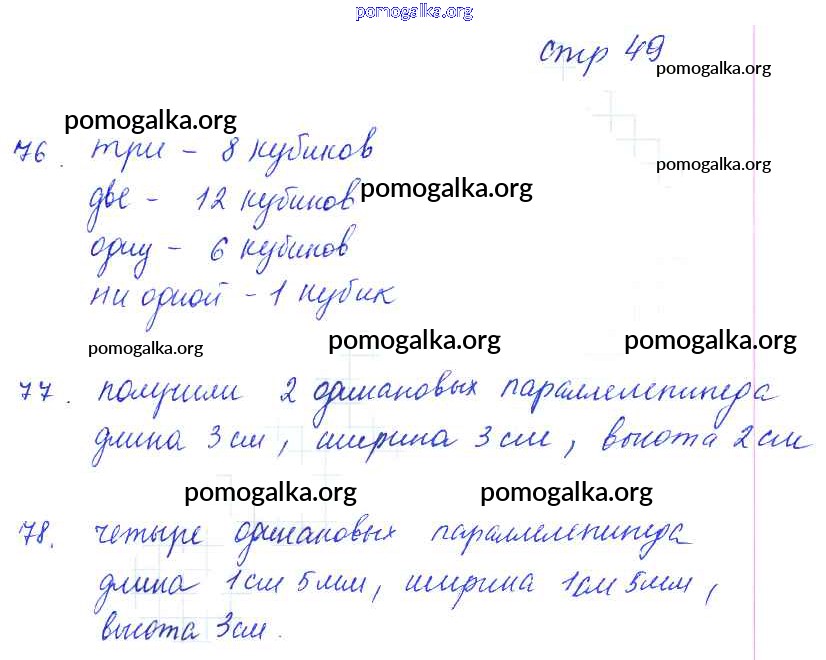 pomogalka.org
стр 49
pomogalka.org
pomogalka.org
76. три - 8 кубиков
pomogalka.org
две - 12 кубиков pomogalka.org
одну - 6 кубиков
ни одной - 1 кубик
pomogalka.org pomogalka.org pomogalka.org
77. получили 2 одинаковых параллелепипеда
длина 3 см, ширина 3 см, высота 2 см
pomogalka.org pomogalka.org
78. четыре одинаковых параллелепипеда
длина 1 см 5 мм, ширина 1 см 5 мм,
высота 3 см.